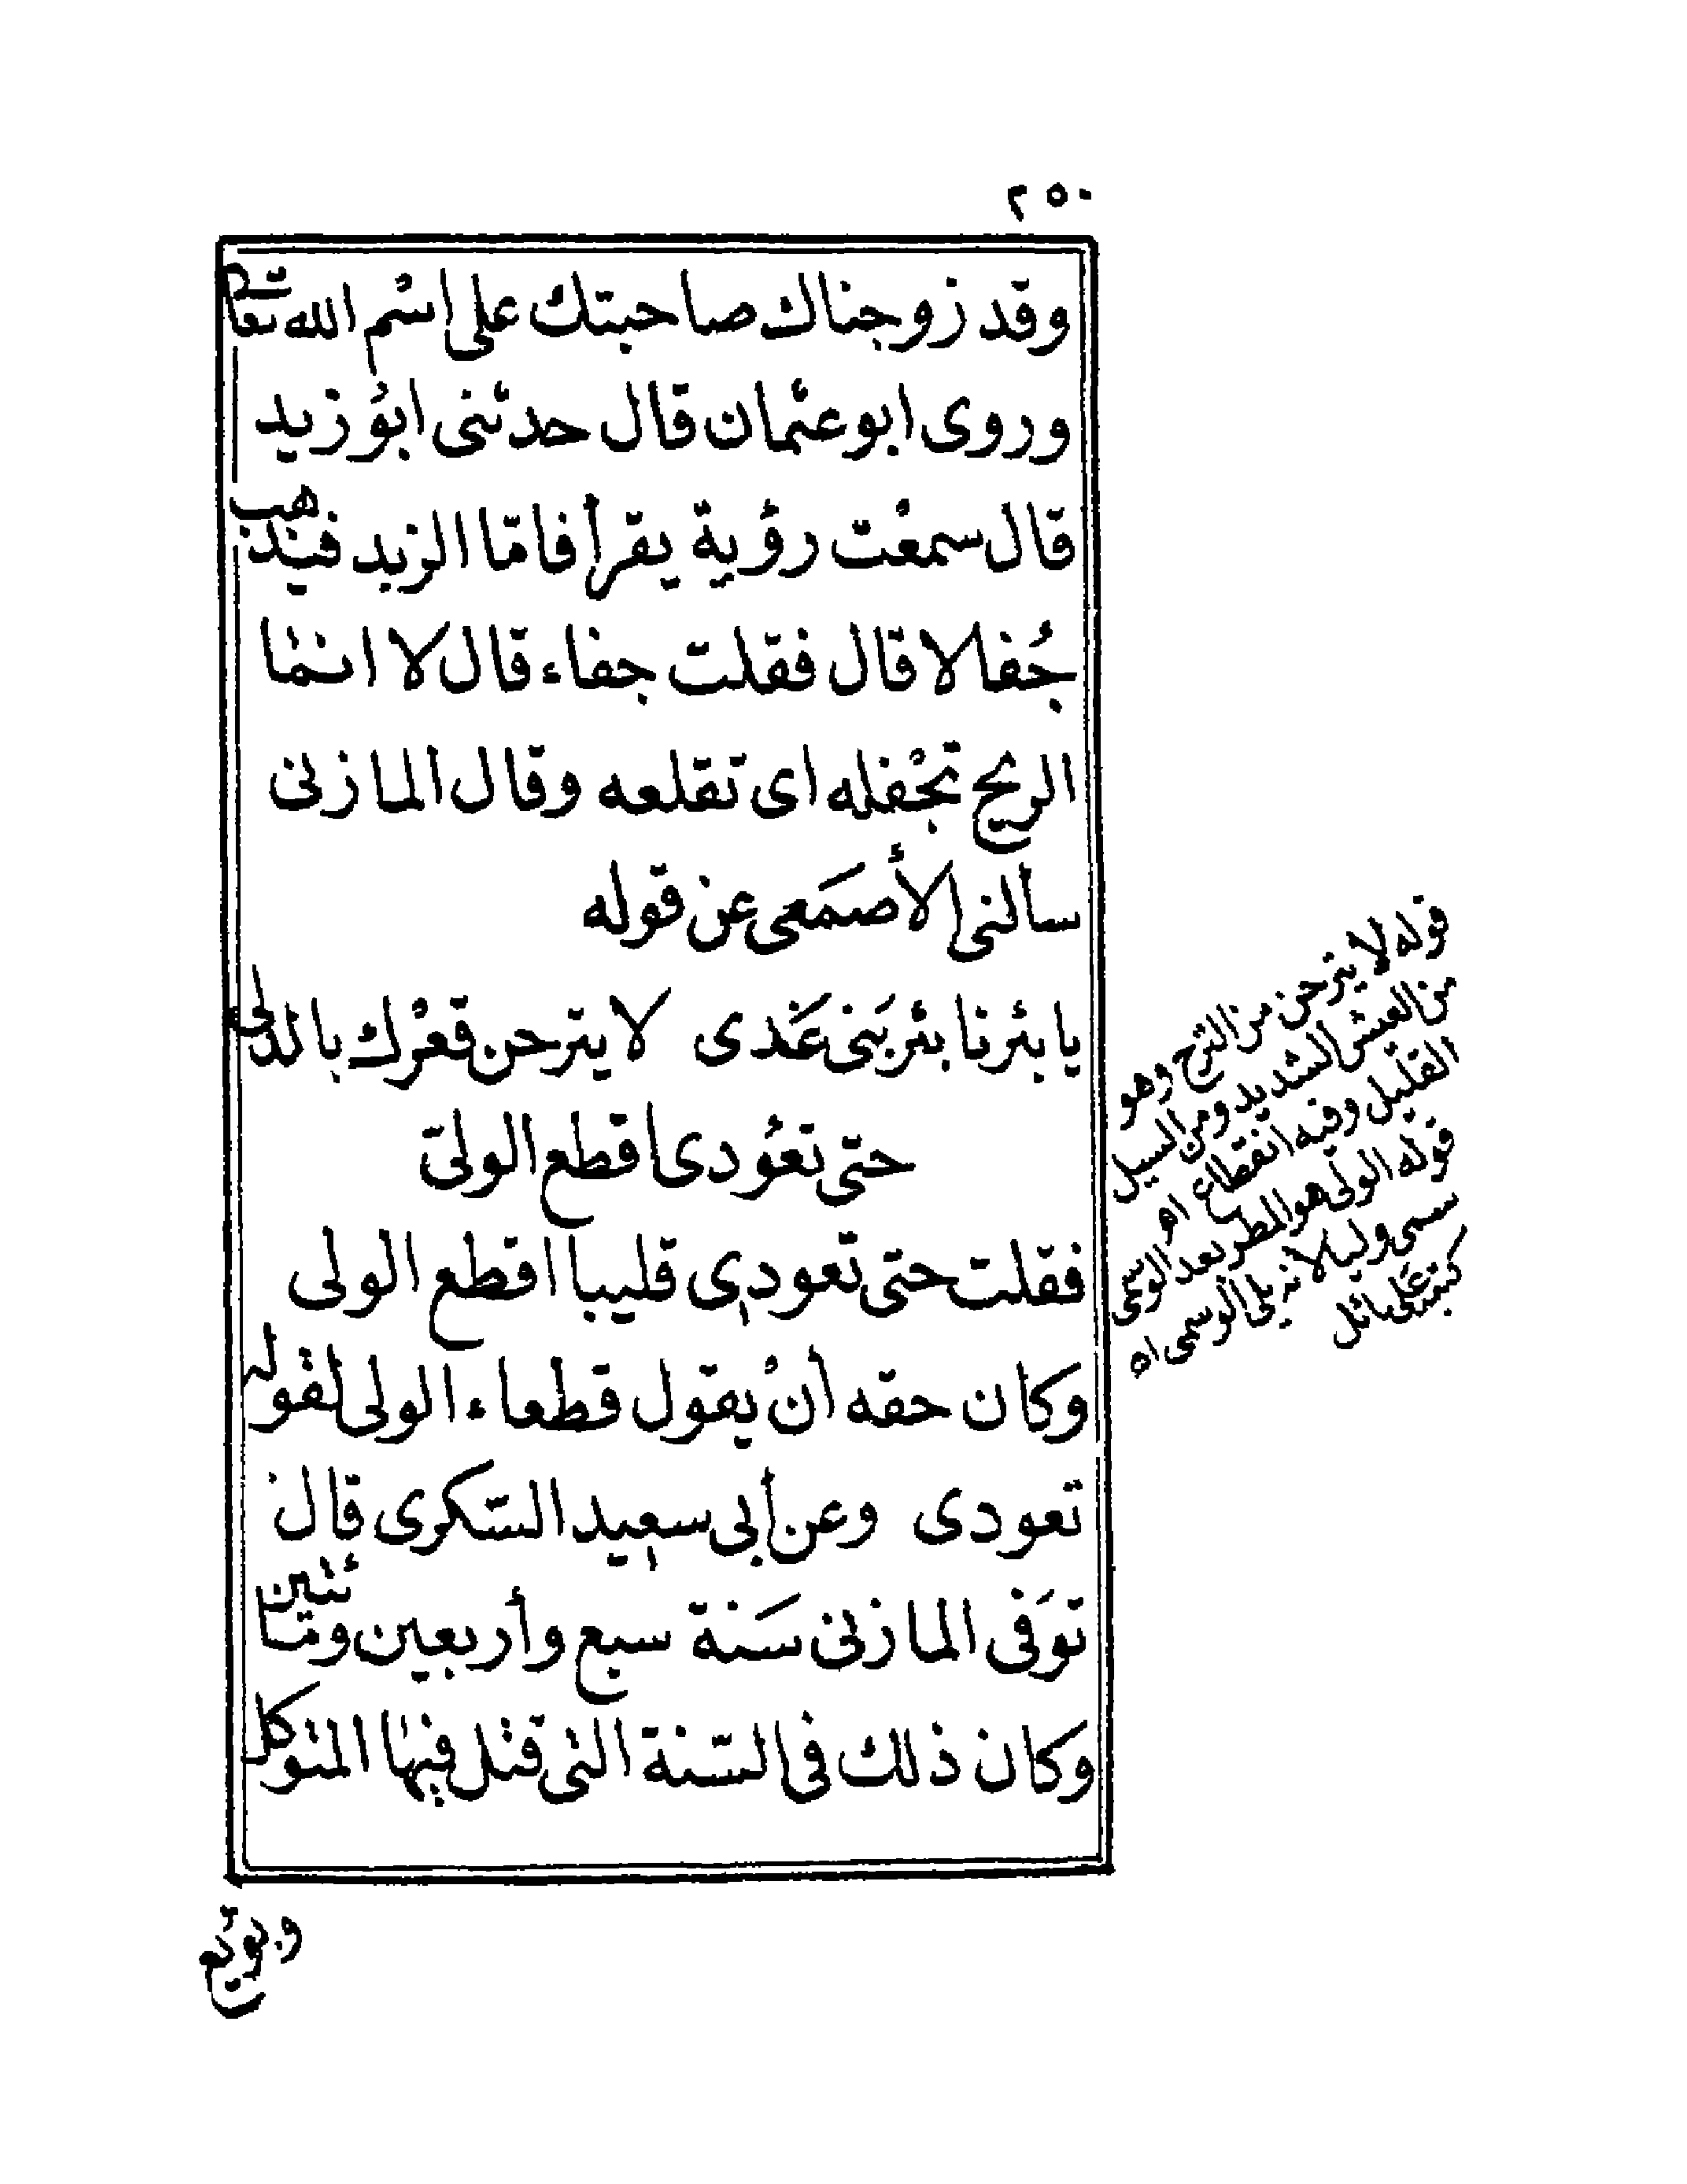 ٢٥٠
وقد زوجناك صاحبتك على اسْم الله تعالى
وروى ابو عثمان قال حدثنى ابوُ زيد
قال سمعْت رؤية يقرأ فامّا الزبد فيذهب
جُفالا قال فقلت جفاء قال لا انما
الريح تجْفله اى تقلعه وقال المازنى
سألنى الأصمَعى عن قوله
يا بئرنا بئر بَنى عَدى لا يترحن قعْرك بالدلى
حتى تعوُدى اقطع الولىّ
فقلت حتى تعودى قليبا اقطع الولى
وكان حقه أنْ يقول قطعاء الولى لقوله
تعودى وعن أبى سعيد السّكرى قال
توَفى المازنى سَنة سبع وأربعين ومائتين
وكان ذلك فى السّنة التى قتل فيها المتوكل
وبويع
قوله لا يترحن من الترح وهو
من العيش الشديد ومن السيل
القليل وفيه انقطاع اه
قوله الولى هو المطر بعد الوسمى
سمى وليا لانه يلى الوسمى اه
كتبه على نائل